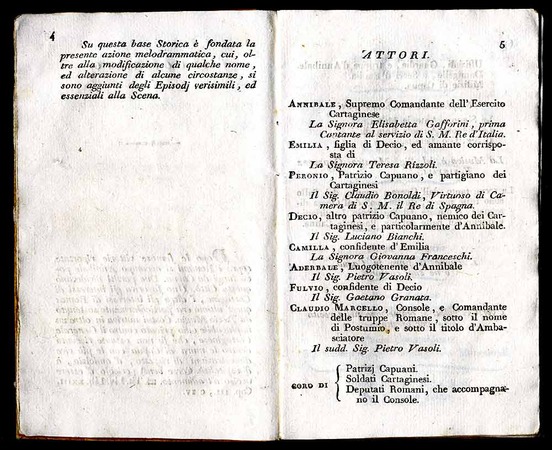 4
Su questa base Storica è fondata la
presente azione melodrammatica, cui, ol-
tre alla modificazione di qualche nome,
ed alterazione di alcune circostanze, si
sono aggiunti degli Episodj verisimili, ed
essenziali alla Scena.
5
ATTORI.
ANNIBALE, Supremo Comandante dell'Esercito
Cartaginese
La Signora Elisabetta Gafforini, prima
Cantante al servizio di S. M. Re d'Italia.
EMILIA, figlia di Decio, ed amante corrispo-
sta di
La Signora Teresa Rizzoli.
PERONIO, Patrizio Capuano, e partigiano dei
Cartaginesi
Il Sig. Claudio Bonoldi, Virtuoso di Ca-
mera di S. M. il Re di Spagna.
DECIO, altro patrizio Capuano, nemico dei Car-
taginesi, e particolarmente d'Annibale.
Il Sig. Luciano Bianchi.
CAMILLA, confidente d'Emilia
La Signora Giovanna Franceschi.
ADERBALE, Luogotenente d'Annibale
Il Sig. Pietro Vasoli.
FULVIO, confidente di Decio
Il Sig. Gaetano Granata.
CLAUDIO MARCELLO, Console, e Comandante
delle truppe Romane, sotto il nome
di Postumio, e sotto il titolo d'Amba-
sciatore
Il sudd. Sig. Pietro Vasoli.
CORO DI
Patrizj Capuani.
Soldati Cartaginesi.
Deputati Romani, che accompagna-
no il Console.